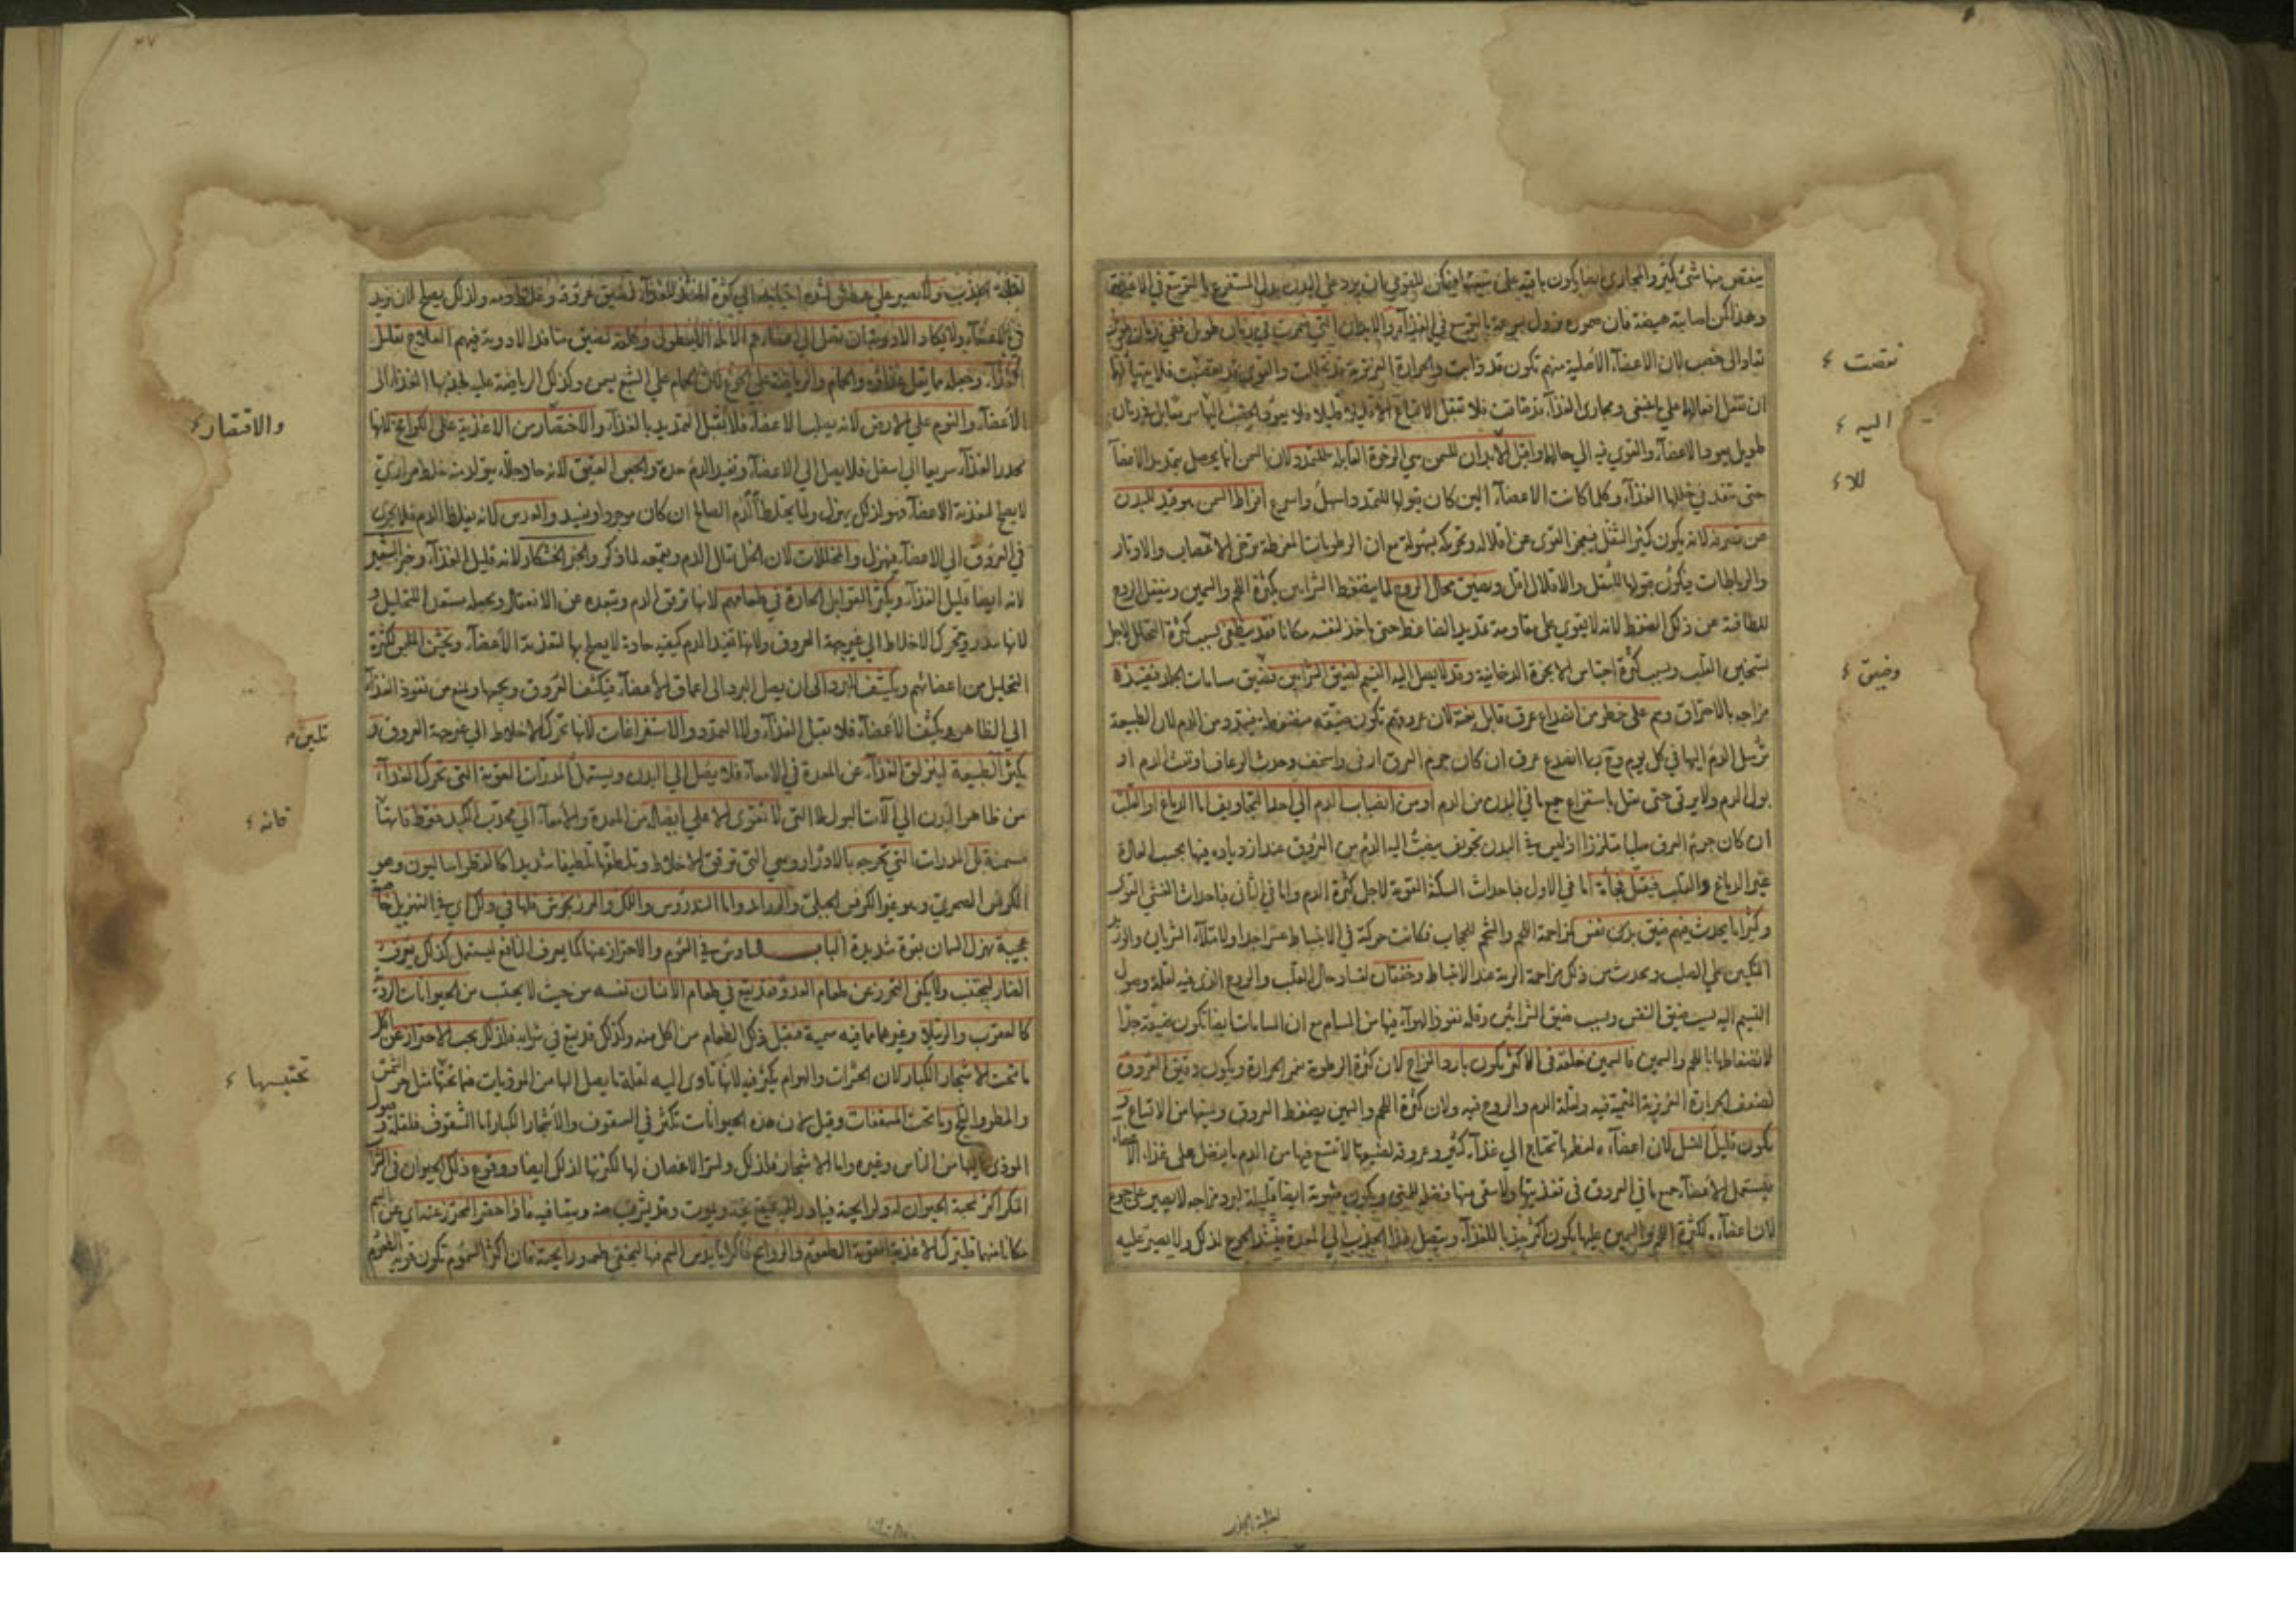 ينقص منها شئ كثير والمجاري ايضا يكون باقية على فيمكن للقوي بان يرد على البدن بدل المستفرغ بالتوسع في الاغذية
وهذا كمن اصابته هيضة فان ضموره يزول بسرعة بالتوسع في الغذاء والابدان التي ضمرت في زمان طويل ففي زمان طويل
تعاد الى خصب لان الاعضاء الاصلية منهم تكون قد ذابت والحرارة الغريزية قد تحللت والقوى قد نقصت فلا
ان تفعل افعالها على ما ينبغي ومجاري الغذاء قد ضاقت فلا تقبل الاتساع الا قليلا قليلا فلا يعود الخصب اليها سريعا بل في زمان
طويل يعود الاعضاء والقوى فيه الى حالها واقبل الابدان للسمن هي الرخوة القابلة للتمدد لان السمن انما يحصل بتمديد الاعضاء
حتى تنفذ في خللها الغذاء وكلما كانت الاعضاء الين كان قبولها للتمدد اسهل واسرع افراط السمن هو قيد للبدن
عن تصرفه لانه يكون كثير الثقل فيعجز القوى عن اقلاله وتحريكه بسهولة مع ان الرطوبات المفرطة ترخي الاعصاب والاوتار
والرباطات فيكون قبولها للثقل والاقلال اقل ويضيق مجال الروح لما ينضغط الشرايين بكثرة اللحم والسمين وينفعل الروح
للطافته عن ذلك الضغط لانه لا يقوى على مقاومة تمديد الضاغط حتى ياخذ لنفسه مكانا فقد ينطفئ بسبب كثرة التحلل لاجل
تسخين القلب وبسبب كثرة احتباس الابخرة الدخانية وقد لا يصل اليه النسيم لضيق الشرايين وضيق مسامات الجلد فيفسد
مزاجه بالاحتراق وهم على خطر من انصداع عرق قاتل بغتة لان عروقهم تكون ضيقة منضغطة فيتمدد من الدم لان الطبيعة
ترسل الدم اليها في كل يوم وربما انصدع عرق ان كان جرم العرق ارق واسخف وحدث الرعاف او نفث الدم او
بول الدم ولا يرقى حتى يقتل باستفراغ جميع ما في البدن من الدم او من انصباب الدم الى احد التجاويف اما الدماغ او القلب
ان كان جرم العرق صلبا متلززا اذ ليس في البدن تجويف ينصب اليه الدم من العروق عند ازدياده فيها بحسب العادة
غير الدماغ والقلب فيقتل فجأة اما في الاول فباحداث السكتة القوية لاجل كثرة الدم واما في الثاني فباحداث الغشي القوي
وكثيرا ما يحدث فيهم ضيق نفس لمزاحمة اللحم والشحم للحجاب فكانت حركته في الانبساط عسرا جدا ولامتلاء الشريان
المتكئين على الصلب ويحدث من ذلك مزاحمة الرية عند الانبساط وخفقان لفساد حال القلب والروح الذي فيه لقلة وصول
النسيم اليه بسبب ضيق النفس وبسبب ضيق الشرايين وقلة نفوذ الهواء فيها من المسام مع ان المسامات ايضا تكون ضيقة جدا
لانضغاطها باللحم والسمين فالسمين خلقة في الاكثر يكون بارد المزاج لان كثرة الرطوبة تغمر الحرارة ويكون دقيق العروق
لضعف الحرارة الغريزية التي فيه ولقلة الدم والروح فيه ولان كثرة اللحم والسمين يضغط العروق ويمنعها من الاتساع و
يكون قليل النسل لان اعضاءه لعظمها تحتاج الى غذاء كثير وعروقه لضيقها لا تتسع فيها من الدم ما يفضل على غذاء الاعضاء
فيستعمل الاعضاء جميع ما في العروق في تغذيتها ولا يبقى منها فضلة للمني ويكون شهوته ايضا قليلة لبرد مزاجه لا يصبر على جوع
لان اعضاءه لكثرة اللحم والسمين عليها يكون اكثر جذبا للغذاء ويتصل هذا الجذب الى المعدة فيشتد الجوع لذلك ولا يصبر عليه
نقصت
اليه
للا
وضيق
لقلة
ولا يصبر على عطش لشدة احتياجه الى كثرة المنفذ للغذاء لضيق عروقه وغلظ دمه ولذلك يصلح لان يزيد
في الاعضاء ولا يكاد الادوية ان تصل الى اعضائهم الالمة الا ببطؤ وقلة لضيق منافذ الادوية فيهم العلاج تقليل
الغذاء وجعله ما يقل غذاؤه والحمام والرياضة على الجوع لان الحمام على الشبع يسمن وكذلك الرياضة عليه لجذبها الغذاء الى
الاعضاء والنوم على الارض لانه يصلب الاعضاء فلا يقبل التمديد بالغذاء والاختصار من الاغذية على الكوامخ لانها
تحدر الغذاء سريعا الى اسفل فلا يصل الى الاعضاء وتفيد الدم حدة والجبن العتيق لانه حاد جلاء يتولد منه خلط مراري
لا يصلح لتغذية الاعضاء فهو لذلك يهزل ولما يختلط الدم الصالح ان كان موجودا ويفسد والعدس لانه يغلظ الدم فلا يجري
في العروق الى الاعضاء فيهزل والمخللات لان الخل يقلل الدم ويقمعه لما ذكر والخبز الخشكار لانه قليل الغذاء وخبز الشعير
لانه ايضا قليل الغذاء ويكثر التوابل الحارة في طعامهم لانها ترقق الدم وتبعده عن الانعقال ويجعله مستعدا للتحليل و
لانها تدر وتحرك الاخلاط الى غير جهة العروق ولانها تفيد الدم كيفية حادة لا يصلح بها لتغذية الاعضاء
التحليل من اعضائهم ويكشف للبرد الى ان يصل البرد الى اعماق الاعضاء فيكثف العروق ويجمعها ويمنع من نفوذ الغذاء
الى الظاهر ويكثف الاعضاء فلا يقبل الغذاء ولا التمدد والاستفراغات لانها تحرك الاخلاط الى غير جهة العروق و
يكثر الطبيعة لينزلق الغذاء عن المعدة في الامعاء فلا يصل الى البدن ويستعمل المدرات القوية التي تحرك الغذاء
من ظاهر البدن الى آلات البول لا التي لا تقوى الا على ايصاله من المعدة والامعاء الى محدب الكبد فقط فانها
مسمنة بل المدرات التي تخرجه بالادرار وهي التي ترقق الاخلاط وتلطفها تلطيفا شديدا كالفطراساليون وهو
الكرفس الصخري وهو غير الكرفس الجبلي والزراوند واما السندروس واللك والمرزنجوش فلها في ذلك اي في التهزيل خاصية
عجيبة تهزل السمان بقوة شديدة الباب السادس في السموم والاحتراز عنها كما يعرف النافع ليستعمل كذلك يعرف
الضار ليجتنب ولا يكفي التحرز عن طعام العدو فقد يقع في طعام الانسان نفسه من حيث لا يحتسب من الحيوانات الردية
كالعقرب والرتيلا وغيرهما مما فيه سمية فيقتل ذلك الطعام من اكل منه وكذلك قد يقع في شرابه فلذلك يجب الاحتراز عن اكل
ما تحت الاشجار الكبار لان الحشرات والهوام يكثر فيه لانها تأوى اليه لقلة ما يصل اليها من المؤذيات هناك مثل حر الشمس
والمطر والثلج وما تحت المسقفات وقيل لان هذه الحيوانات تكثر في السقوف والاشجار الكبار اما السقوف فلقلة وصول
الموذي اليها من الناس وغيره واما الاشجار فلذلك ولستر الاغصان لها لكثرتها لذلك ايضا ووقوع ذلك الحيوان في الشراب
المكرر اكثر لمحبة الحيوان له ولرايحته فيبادر اليه فيقع فيه ويموت وقد يشرب منه ويتقيا فيه فاذا حضر التحرز عنه اي عن السم
مكانا متهما فليترك الاغذية القوية الطعوم والروايح فاكثر ما يدس السم فيها ليخفى طعمه ورايحته فان اكثر السموم تكون قوية الطعوم
والاقتصار
تليين
فانه
تحتبسها